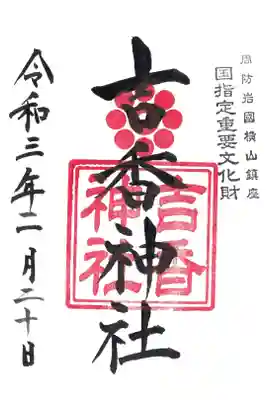 周防岩國横山鎮座
国指定重要文化財
吉香神社
吉香
神社
令和三年二月二十日